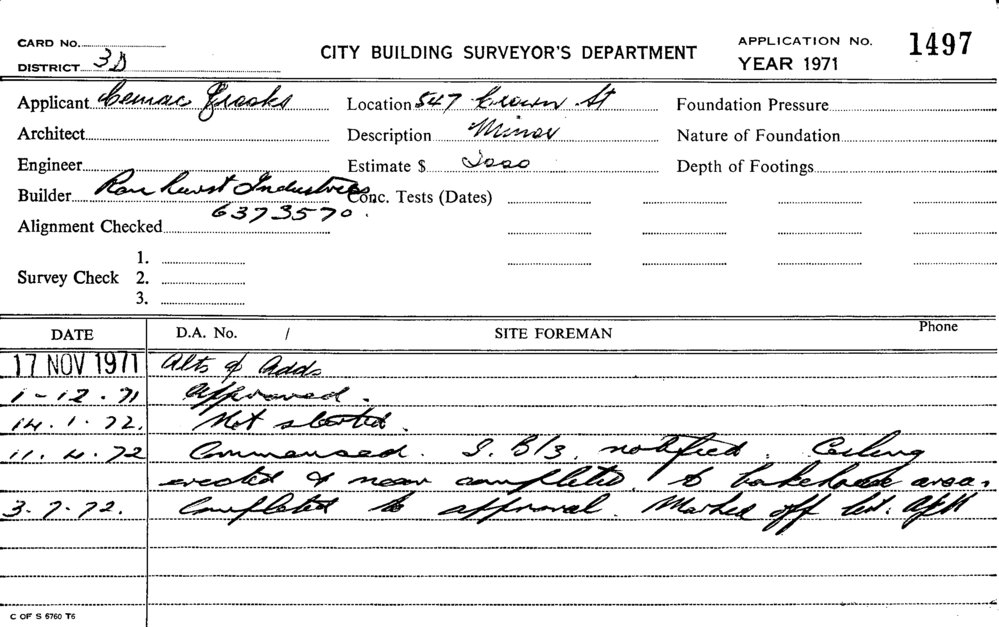 CARD No.
DISTRICT 3D
CITY BUILDING SURVEYOR'S DEPARTMENT
APPLICATION No. 1497
YEAR 1971
Applicant Cemac
Location 547 Crown St
Foundation Pressure
Architect
Description Minor
Nature of Foundation
Engineer
Estimate $
Depth of Footings
Builder Ranhurst Industries
6373570.
Conc. Tests (Dates)
Alignment Checked
Survey Check
1.
2.
3.
DATE
D.A. No. /
SITE FOREMAN
Phone
17 NOV 1971 Alts & Adds
1-12.71 Approved.
14.1.72. Not started.
11.4.72 Commenced. I. B/3. notified. Ceiling
erected & near completed to bakehouse area.
3.7.72. Completed to approval. Marked off
C OF S 6760 T6